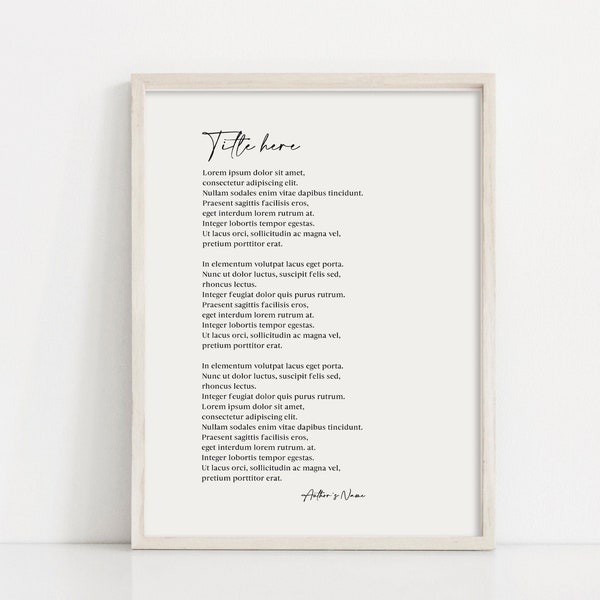 Title here
Lorem ipsum dolor sit amet,
consectetur adipiscing elit.
Nullam sodales enim vitae dapibus tincidunt.
Praesent sagittis facilisis eros,
eget interdum lorem rutrum at.
Integer lobortis tempor egestas.
Ut lacus orci, sollicitudin ac magna vel,
pretium porttitor erat.
In elementum volutpat lacus eget porta.
Nunc ut dolor luctus, suscipit felis sed,
rhoncus lectus.
Integer feugiat dolor quis purus rutrum.
Praesent sagittis facilisis eros,
eget interdum lorem rutrum at.
Integer lobortis tempor egestas.
Ut lacus orci, sollicitudin ac magna vel,
pretium porttitor erat.
In elementum volutpat lacus eget porta.
Nunc ut dolor luctus, suscipit felis sed,
rhoncus lectus.
Integer feugiat dolor quis purus rutrum.
Lorem ipsum dolor sit amet,
consectetur adipiscing elit.
Nullam sodales enim vitae dapibus tincidunt.
Praesent sagittis facilisis eros,
eget interdum lorem rutrum. at.
Integer lobortis tempor egestas.
Ut lacus orci, sollicitudin ac magna vel,
pretium porttitor erat.
Author's Name